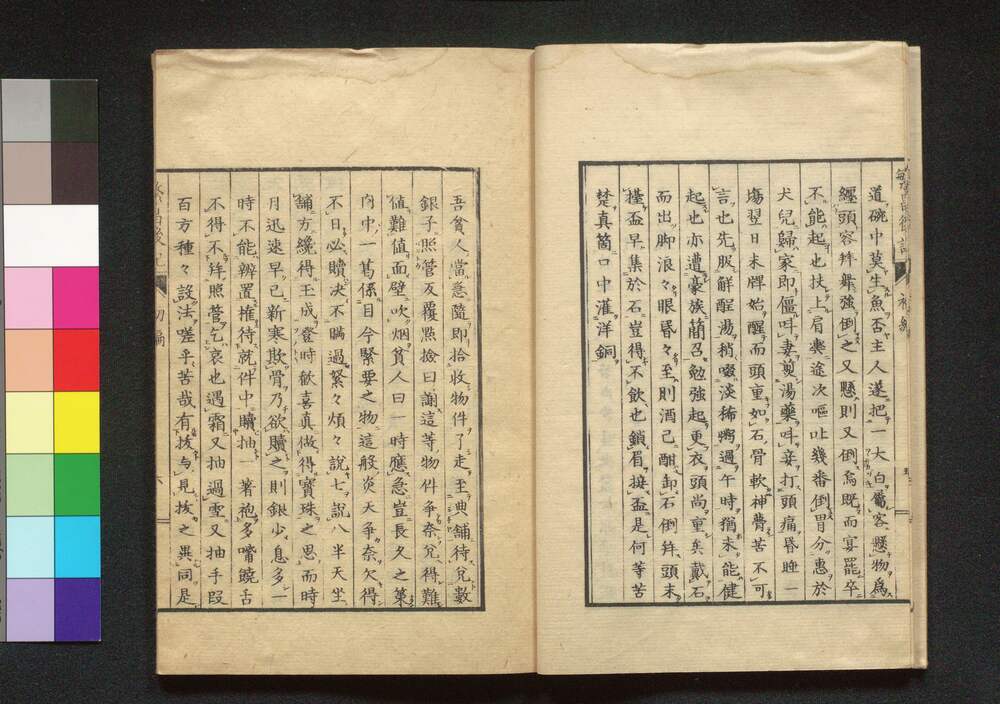 道碗中莫生魚否主人遂把一大白屬客懸物爲
纏頭容辨舞強倒之又懸則又倒焉既而宴罷卒
不能起也扶上肩輿途次嘔吐幾番倒胃分惠於
犬兒歸家即僵呌妻煎湯藥呌妾打頭痛昏睡一
塲翌日未牌始醒而頭重如石骨軟神費苦不可
言也先服解醒湯稍啜淡稀粥過午時猶未能健
起也亦遭豪族簡召勉強起更衣頭尚重矣戴石
而出脚浪々眼昏々至則酒已酣卸石倒辨頭未
擡盃早集於石豈得不飲也鎖眉接盃是何等苦
楚真箇口中灌洋銅
吾貧人當急隨即拾收物件了走至典舗待兌數
銀子照管反覆㸃撿曰謝這等物件爭奈兌得難
値難値面壁吹烟貧人曰一時應急豈長久之策
内中一葛係目今緊要之物這般炎天爭奈欠得
不日必贖决不瞞過緊々煩々說七說八半天坐
舗方纔得玉成登時歡喜真做得寳珠之思而時
月迅速早已新寒欺骨乃欲贖之則銀少息多一
時不能辨置推待就件中贖抽一著袍多嘴饒舌
不得不辨照管乞哀也遇霜又抽過雪又抽手叚
百方種々設法嗟乎苦哉有拔与見拔之異同是